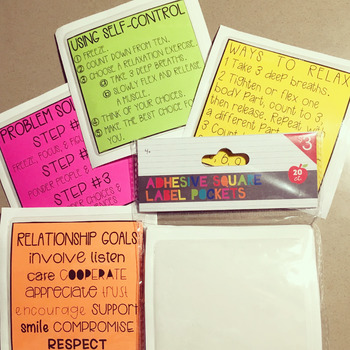 USING SELF-CONTROL
① FREEZE.
② COUNT DOWN FROM TEN.
③ CHOOSE A RELAXATION EXERCISE.
Ⓐ TAKE 3 DEEP BREATHS.
Ⓑ SLOWLY FLEX AND RELEASE
A MUSCLE.
④ THINK OF YOUR CHOICES.
⑤ MAKE THE BEST CHOICE FOR
WAYS TO RELAX
1 Take 3 deep breaths.
2 Tighten or flex one
body Part, count to 3,
then release. Repeat
a different Part
3 Count
PROBLEM SO
STEP
FREEZE, FOCUS, &
STEP
PONDER PEOPLE &
STEP #3
CHOICES &
$3
ADHESIVE SQUARE
LABEL POCKETS
20
ct.
RELATIONSHIP GOALS:
involve listen
care COOPERATE
appreciate trust
encourage SUPPORT
smile COMPROMISE
RESPECT